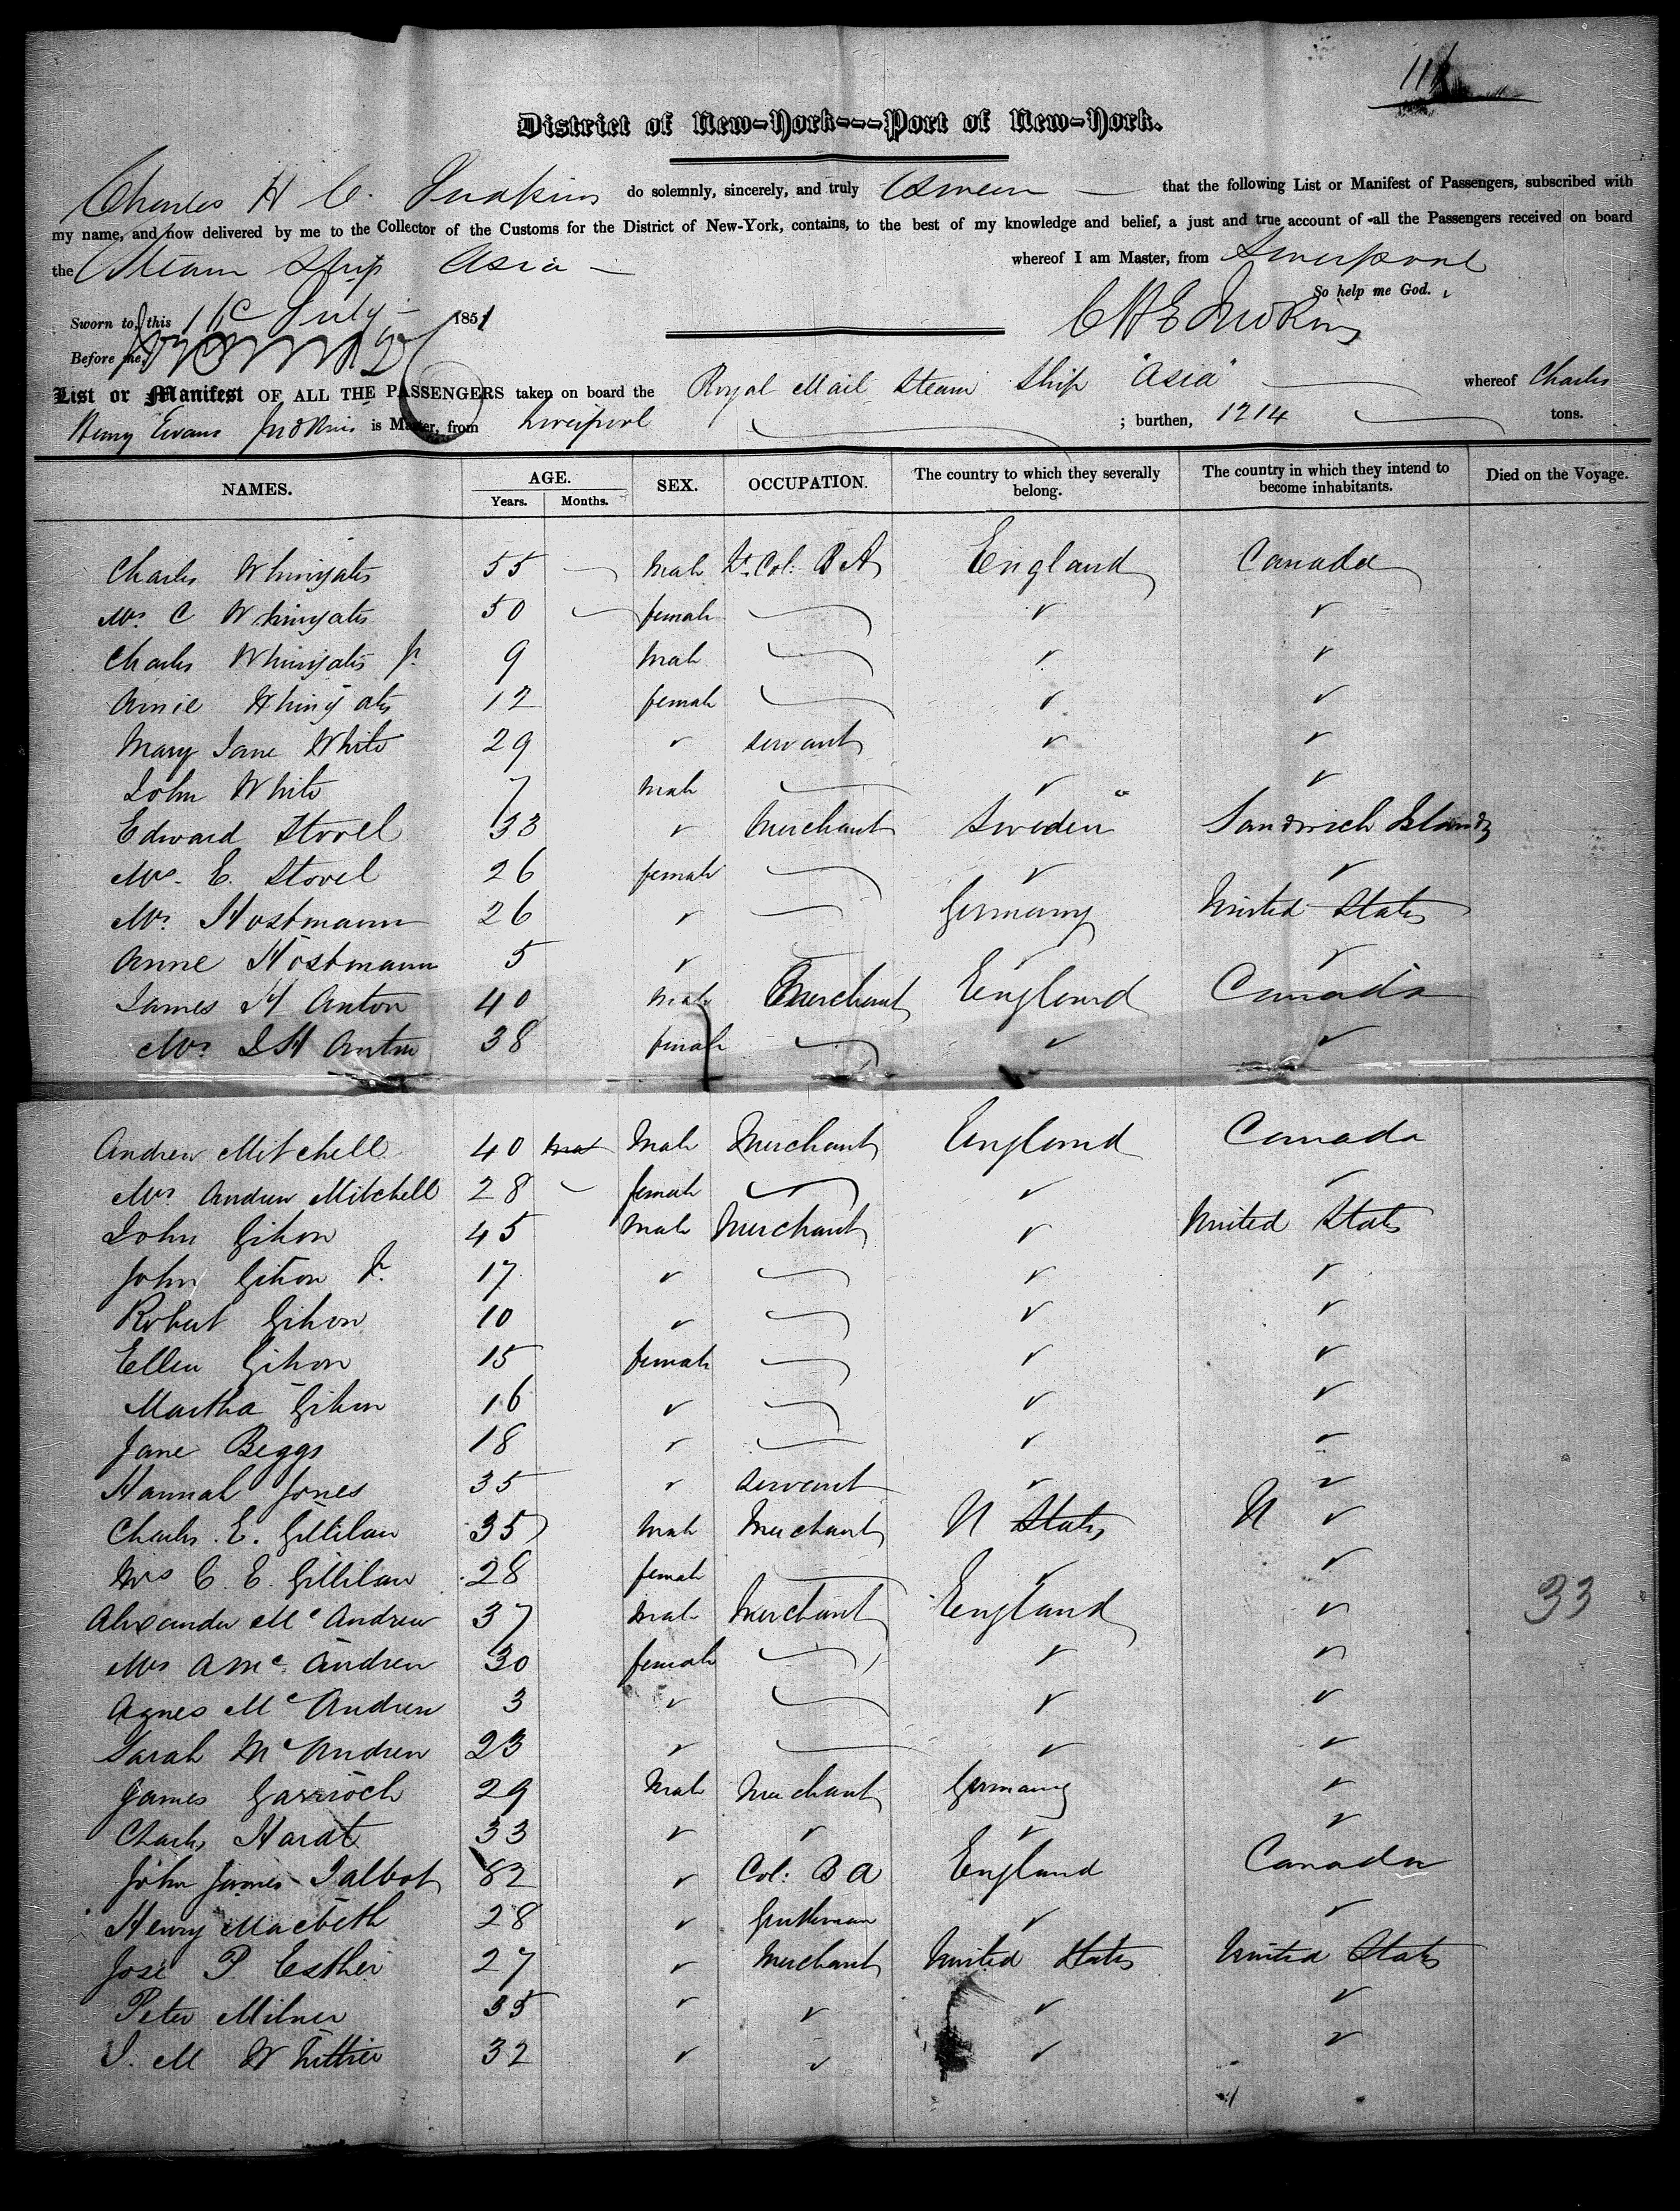 District of New-York---Port of New-York.
Charles H E. Judkins do solemnly, sincerely, and truly Swear that the following List or Manifest of Passengers, subscribed with
my name, and now delivered by me to the Collector of the Customs for the District of New-York, contains, to the best of my knowledge and belief, a just and true account of all the Passengers received on board
the Steam Ship Asia — whereof I am Master, from Liverpool
So help me God.
Sworn to, this July 1851 C H E Judkins
Before me,
List or Manifest OF ALL THE PASSENGERS taken on board the Royal Mail Steam Ship "Asia" whereof Charles
Henry Evans Judkins is Master, from Liverpool ; burthen, 1214 tons.
NAMES. AGE. SEX. OCCUPATION. The country to which they severally belong. The country in which they intend to become inhabitants. Died on the Voyage.
Years. Months.
Charles Whinyates 55 Male Lt. Col: R A England Canada
Mrs. C Whinyates 50 female ✓ ✓
Charles Whinyates Jr. 9 Male ✓ ✓
Amie Whinyates 12 female ✓ ✓
Mary Jane White 29 ✓ servant ✓ ✓
John White 7 Male ✓ ✓
Edward Stovel 33 ✓ Merchant Sweden Sandwich Islands
Mrs. E. Stovel 26 female ✓ ✓
Mrs. Hostmann 26 ✓ Germany United States
Anne Hostmann 5 ✓ ✓ ✓
James H Anton 40 Male Merchant England Canada
Mrs J H Anton 38 female ✓ ✓
Andrew Mitchell 40 Male Merchant England Canada
Mrs Andrew Mitchell 28 female ✓ ✓
John Gihon 45 Male Merchant ✓ United States
John Gihon Jr. 17 ✓ ✓ ✓
Robert Gihon 10 ✓ ✓ ✓
Ellen Gihon 15 female ✓ ✓
Martha Gihon 16 ✓ ✓ ✓
Jane Beggs 18 ✓ ✓ ✓
Hannah Jones 35 ✓ servant ✓ ✓
Charles. E. Gillilan 35 Male Merchant U States U ✓
Mrs C. E. Gillilan 28 female ✓ ✓
Alexander McAndrew 37 Male Merchant England ✓ 33
Mrs A Mc. Andrew 30 female ✓ ✓
Agnes McAndrew 3 ✓ ✓ ✓
Sarah McAndrew 23 ✓ ✓ ✓
James Garrioch 29 Male Merchant Germany ✓
Charles Hardt 33 ✓ ✓ ✓ ✓
John James Talbot 82 ✓ Col: R A England Canada
Henry Macbeth 28 ✓ Gentleman ✓ ✓
José P. Esther 27 ✓ Merchant United States United States
Peter Milner 35 ✓ ✓ ✓ ✓
J. M Whittier 32 ✓ ✓ ✓ ✓